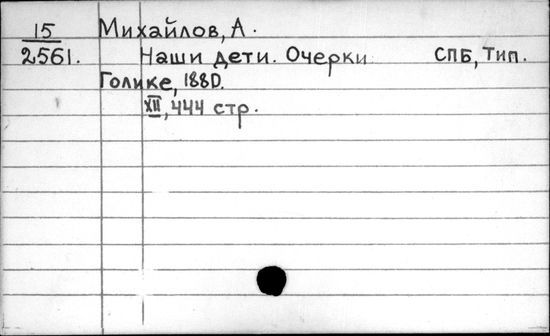 15 Михайлов, А.
2561. Наши дети. Очерки СПБ, Тип.
Голике, 1880.
XII, 444 стр.